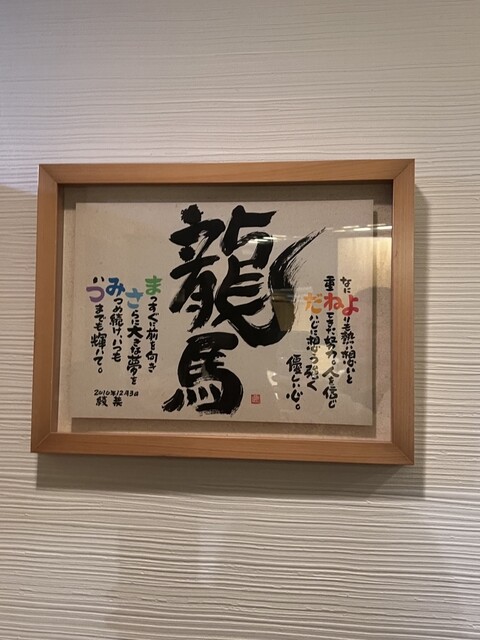 なによりも熱い想いと
重ねてきた努力。人を信じ
だいじに想う強く
優しい心。
龍馬
まっすぐに前を向き
さらに大きな夢を
みつめ続け、いつも
いつまでも輝いて。
2010年12月3日